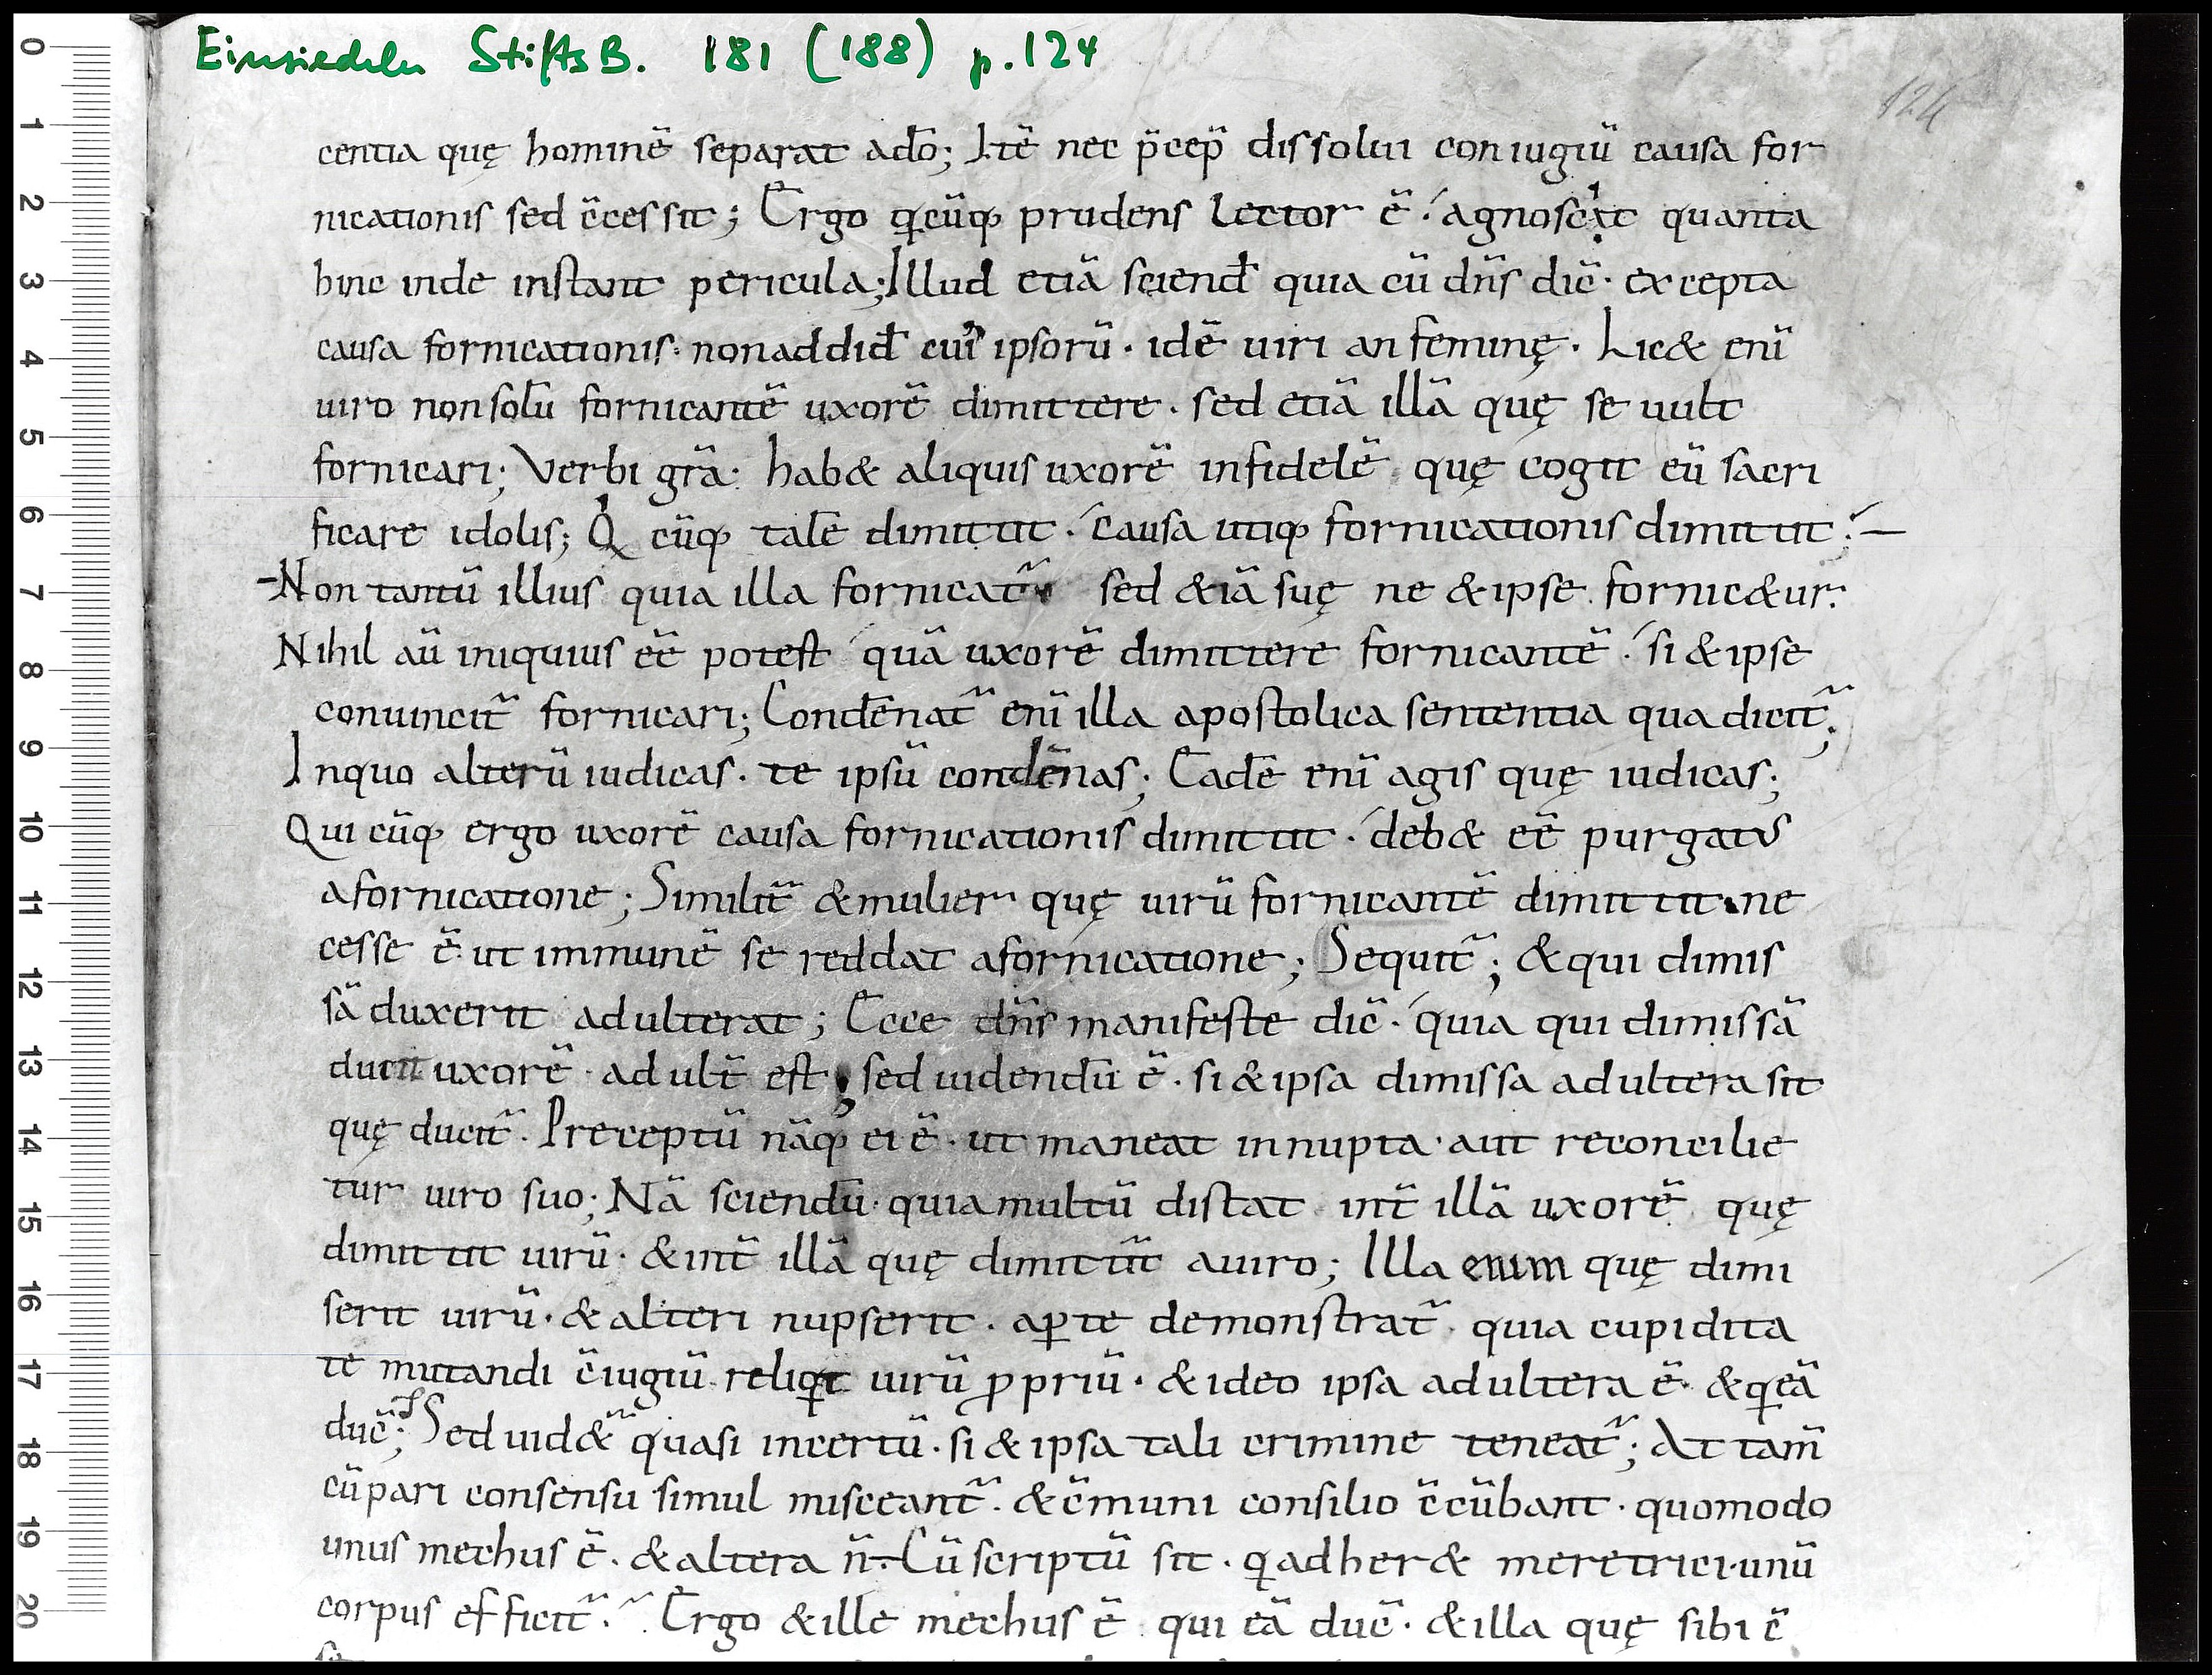 Einsiedeln StiftsB. 181 (188) p.124
124
centia quę hominē separat ado̅; Itē nec p̄cep̄ dissolui coniugiū causa for
nicationis sed c̄cessit; Ergo qcūq; prudens lector ē. agnoscit quanta
hinc inde instant pericula; Illud etiā sciend̄ quia cū dn̄s dic̄. excepta
causa fornicationis. nonaddid̄ cui ipsorū. idē uiri an feminę. Lic& enī
uiro nonsolū fornicantē uxorē dimittere. sed etiā illā quę se uult
fornicari; Verbi grā. hab& aliquis uxorē infidelē quę cogit eū sacri
ficare idolis; Q cūq; talē dimittit. causa utiq; fornicationis dimittit.
Non tantū illius quia illa fornicat̄ sed &iā suę ne &ipse fornic&ur.
Nihil aū iniquius ēē potest quā uxorē dimittere fornicantē. si &ipse
conuincit̄ fornicari; Condēnat̄ enī illa apostolica sententia qua dicit̄;
Inquo alterū iudicas. te ipsū condēnas; Eadē enī agis quę iudicas;
Qui cūq; ergo uxorē causa fornicationis dimittit. deb& eē purgatus
afornicatione; Similit̄ &mulier quę uirū fornicantē dimittit. ne
cesse ē. ut immunē se reddat afornicatione; Sequit̄; &qui dimis
sā duxerit adulterat; Ecce dn̄s manifeste dic̄. quia qui dimissā
ducit uxorē. adult̄ est; sed uidendū ē. si &ipsa dimissa adultera sit
quę ducit̄. Preceptū nāq; ei ē. ut maneat innupta. aut reconcilie
tur uiro suo; Nā sciendū. quia multū distat int̄ illā uxorē quę
dimittit uirū. &int̄ illā quę dimittit̄ auiro; Illa enim quę dimi
serit uirū. &alteri nupserit. aꝑte demonstrat̄. quia cupidita
te mutandi c̄iugiū reliqt uirū ꝓpriū. &ideo ipsa adultera ē. &q eā
duc̄; Sed uid&̄ quasi incertū. si &ipsa tali crimine teneat̄; At tam̄
cūpari consensu simul misceant̄. &c̄muni consilio c̄cūbant. quomodo
unus mechus ē. &altera n̄. Cū scriptū sit. q adher& meretrici. unū
corpus efficit̄. Ergo &ille mechus ē qui eā duc̄. &illa quę sibi c̄